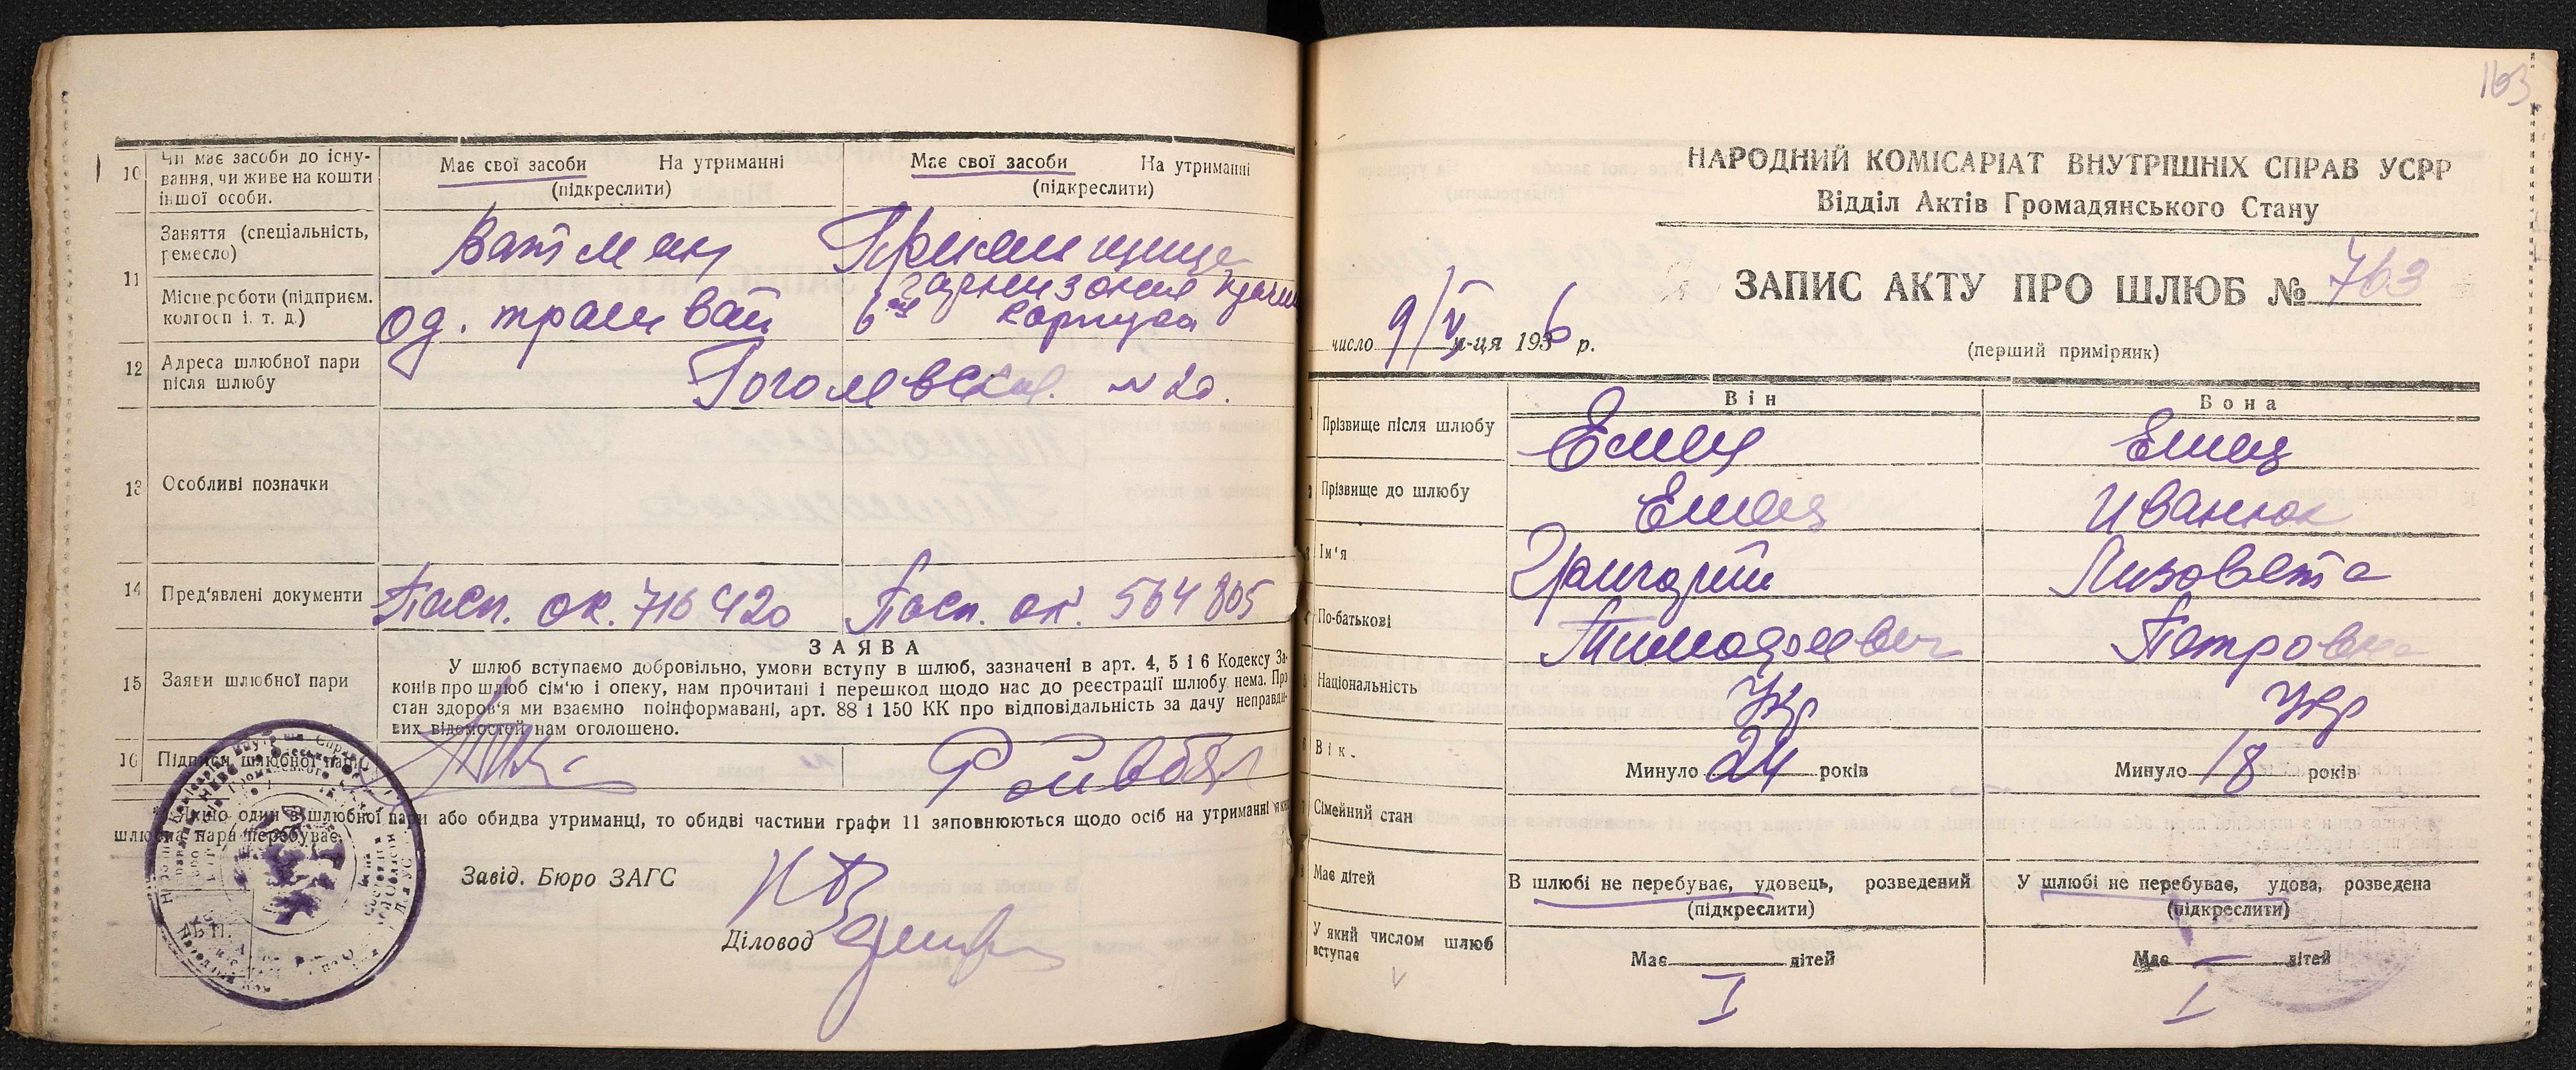 10 Чи має засоби до існу-
вання, чи живе на кошти
іншої особи.
Має свої засоби На утриманні
(підкреслити)
Має свої засоби На утриманні
(підкреслити)
11 Заняття (спеціальність,
ремесло)
Ватман
Місце роботи (підприєм.
колгосп і. т. д.)
од. трамвай
6ой корпуса
12 Адреса шлюбної пари
після шлюбу
Гоголевская. № 20.
13 Особливі позначки
14 Пред'явлені документи
Пасп. ОК. 716420
Пасп. ОК. 564805
15 Заяви шлюбної пари
ЗАЯВА
У шлюб вступаємо добровільно, умови вступу в шлюб, зазначені в арт. 4, 5 і 6 Кодексу За-
конів про шлюб сім'ю і опеку, нам прочитані і перешкод щодо нас до реєстрації шлюбу нема. Про
стан здоров'я ми взаємно поінформавані, арт. 88 і 150 КК про відповідальність за дачу неправди-
вих відомостей нам оголошено.
16 Підписи шлюбної пари
Якщо один з шлюбної пари або обидва утриманці, то обидві частини графи 11 заповнюються щодо осіб на утриманні яких
шлюбна пара перебуває.
Завід. Бюро ЗАГС
Діловод
163
НАРОДНИЙ КОМІСАРІАТ ВНУТРІШНІХ СПРАВ УСРР
Відділ Актів Громадянського Стану
ЗАПИС АКТУ ПРО ШЛЮБ № 763
число 9/V м-ця 1936 р.
(перший примірник)
Він Вона
1 Прізвище після шлюбу Емец Емец
2 Прізвище до шлюбу Емец Иванюк
3 Ім'я Григорий Лизовета
4 По-батькові Тимофеевич Петровна
5 Національність Укр Укр
6 Вік. Минуло 24 років Минуло 18 років
7 Сімейний стан
В шлюбі не перебуває, удовець, розведений
(підкреслити)
У шлюбі не перебуває, удова, розведена
(підкреслити)
8 Має дітей
Має дітей Має — дітей
У який числом шлюб
вступає
I I